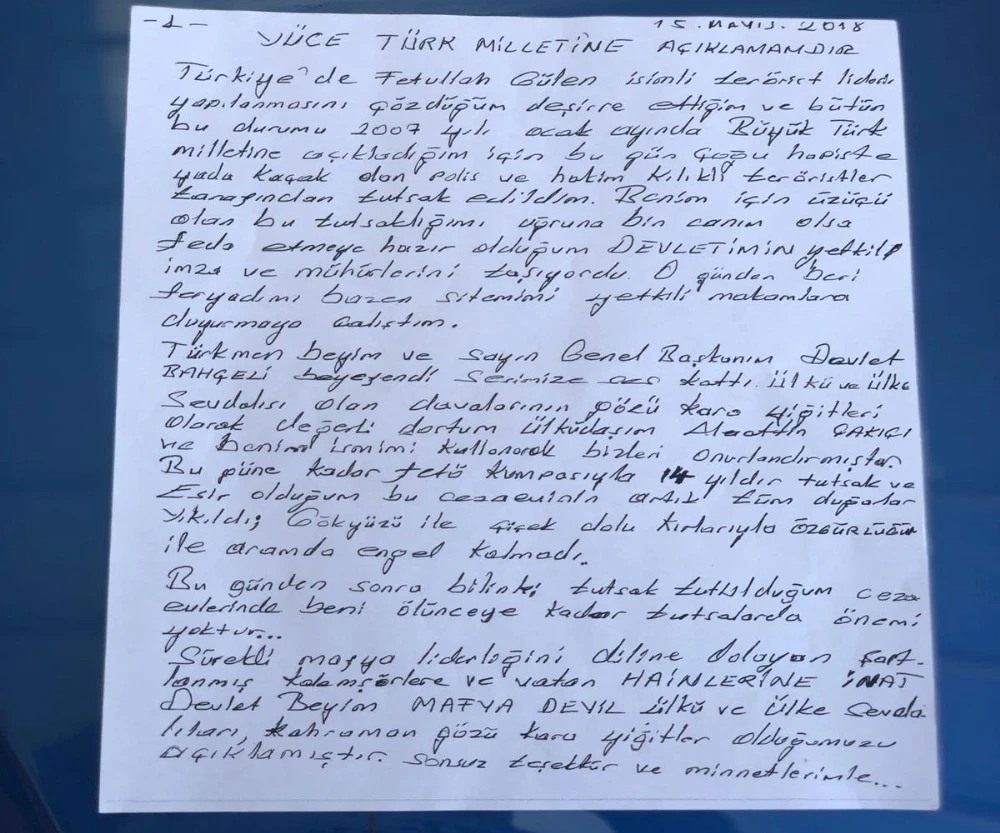 -1- 15.MAYIS.2018
YÜCE TÜRK MİLLETİNE AÇIKLAMAMDIR
Türkiye'de Fetullah Gülen isimli terörist lideri
yapılanmasını çözdüğüm deşifre ettiğim ve bütün
bu durumu 2007 yılı ocak ayında Büyük Türk
milletine açıkladığım için bu gün çoğu hapiste
yada kaçak olan polis ve hakim kılıklı teröristler
tarafından tutsak edildim. Benim için üzücü
olan bu tutsaklığımı uğruna bin canım olsa
feda etmeye hazır olduğum DEVLETİMİN yetkili
imza ve mühürlerini taşıyordu. O günden beri
feryadımı bazen sitemimi yetkili makamlara
duyurmaya çalıştım.
Türkmen beyim ve sayın Genel Başkanım Devlet
BAHÇELİ beyefendi sesimize ses kattı. Ülkü ve Ülke
Sevdalısı olan davalarının gözü kara yiğitleri
olarak değerli dostum ülküdaşım Alaattin ÇAKICI
ve benim ismimi kullanarak bizleri onurlandırmıştır.
Bu güne kadar fetö kumpasıyla 14 yıldır tutsak ve
Esir olduğum bu cezaevinin artık tüm duvarlar
yıkıldı; Gökyüzü ile çiçek dolu kırlarıyla ÖZGÜRLÜĞÜM
ile aramda engel kalmadı.
Bu günden sonra bilinki; tutsak tutulduğum ceza
evlerinde beni ölünceye kadar tutsalarda önemi
yoktur...
Sürekli mafya liderliğini diline dolayan şart-
lanmış kalemşörlere ve vatan HAİNLERİNE İNAT
Devlet Beyim MAFYA DEYİL ülkü ve Ülke Sevda
lıları, kahraman gözü kara yiğitler olduğumuzu
açıklamıştır. Sonsuz teşekkür ve minnetlerimle...